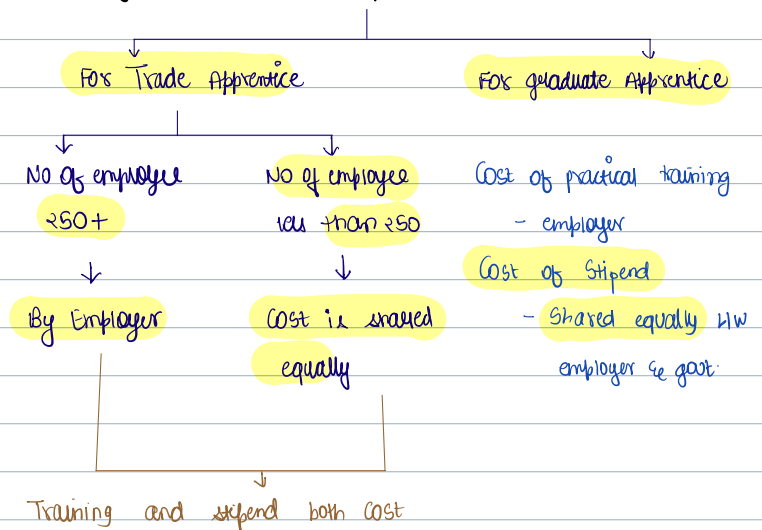 For Trade Apprentice
For graduate Apprentice
No of employee
250+
By Employer
No of employee
less than 250
Cost is shared
equally
Cost of practical training
- employer
Cost of Stipend
- Shared equally b/w
employer & govt.
Training and stipend both cost